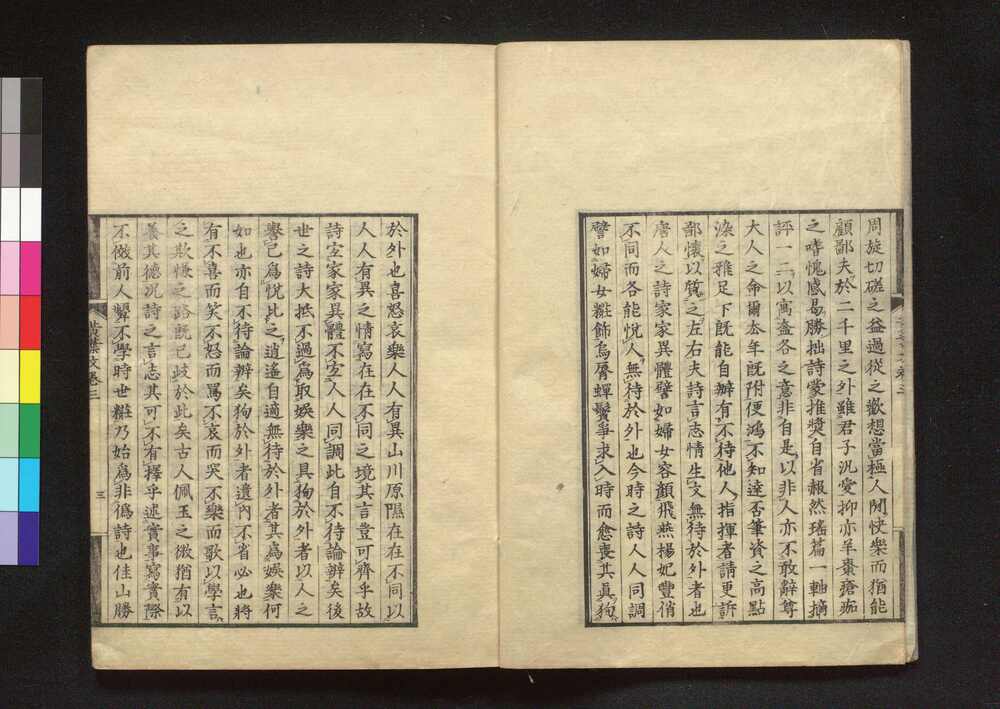 周旋切磋之益過從之歡想當極人間快樂而猶能
顧鄙夫於二千里之外雖君子汎愛抑亦羊棗瘡痂
之嗜愧感曷勝拙詩蒙推奬自省赧然瑤篇一軸摛
評一二以寓盍各之意非自是以非人亦不敢辭尊
大人之命爾厺年既附便鴻不知達否筆資之高點
染之雅足下既能自辦有不待他人指揮者請更訴
鄙懷以質之左右夫詩言志情生文無待於外者也
唐人之詩家家異體譬如婦女容顏飛燕揚妃豐俏
不同而各能悅人無待於外也今時之詩人人同調
譬如婦女粧飾烏脣蟬鬢爭求入時而愈喪其眞狥
於外也喜怒哀樂人人有異山川原隰在在不同以
人人有異之情寫在在不同之境其言豈可齊乎故
詩宜家家異體不宜人人同調此自不待論辨矣後
世之詩大抵不過爲取娛樂之具狥於外者以人之
譽己爲悅比之逍遙自適無待於外者其爲娛樂何
如也亦自不待論辨矣狥於外者遺內不省必也將
有不喜而笑不怒而罵不哀而哭不樂而歌以學言
之欺慊之路既已歧於此矣古人佩玉之微猶有以
養其德况詩之言志其可不有擇乎述實事寫實際
不傚前人顰不學時世粧乃始爲非僞詩也佳山勝
黃葉 卷三
三